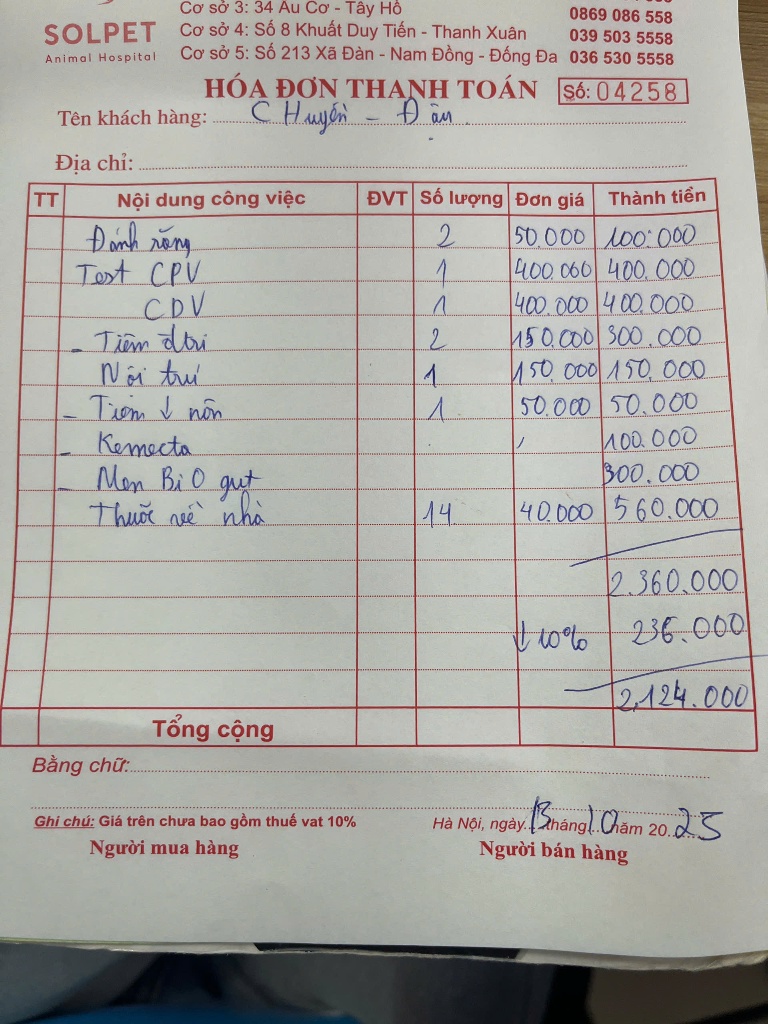 SOLPET
Animal Hospital
Cơ sở 3: 34 Âu Cơ - Tây Hồ
0869 086 558
Cơ sở 4: Số 8 Khuất Duy Tiến - Thanh Xuân
039 503 5558
Cơ sở 5: Số 213 Xã Đàn - Nam Đồng - Đống Đa
036 530 5558
HÓA ĐƠN THANH TOÁN
Số: 04258
Tên khách hàng: C Huyền - Đậu
Địa chỉ:
TT Nội dung công việc ĐVT Số lượng Đơn giá Thành tiền
Đánh răng 2 50.000 100.000
Test CPV 1 400.000 400.000
CDV 1 400.000 400.000
- Tiêm đtri 2 150.000 300.000
Nội trú 1 150.000 150.000
- Tiêm ↓ nôn 1 50.000 50.000
- Kemecta 100.000
- Men BiO gut 300.000
Thuốc về nhà 14 40.000 560.000
2.360.000
↓ 10% 236.000
2.124.000
Tổng cộng
Bằng chữ:
Ghi chú: Giá trên chưa bao gồm thuế vat 10%
Hà Nội, ngày 13 tháng 10 năm 20 25
Người mua hàng
Người bán hàng